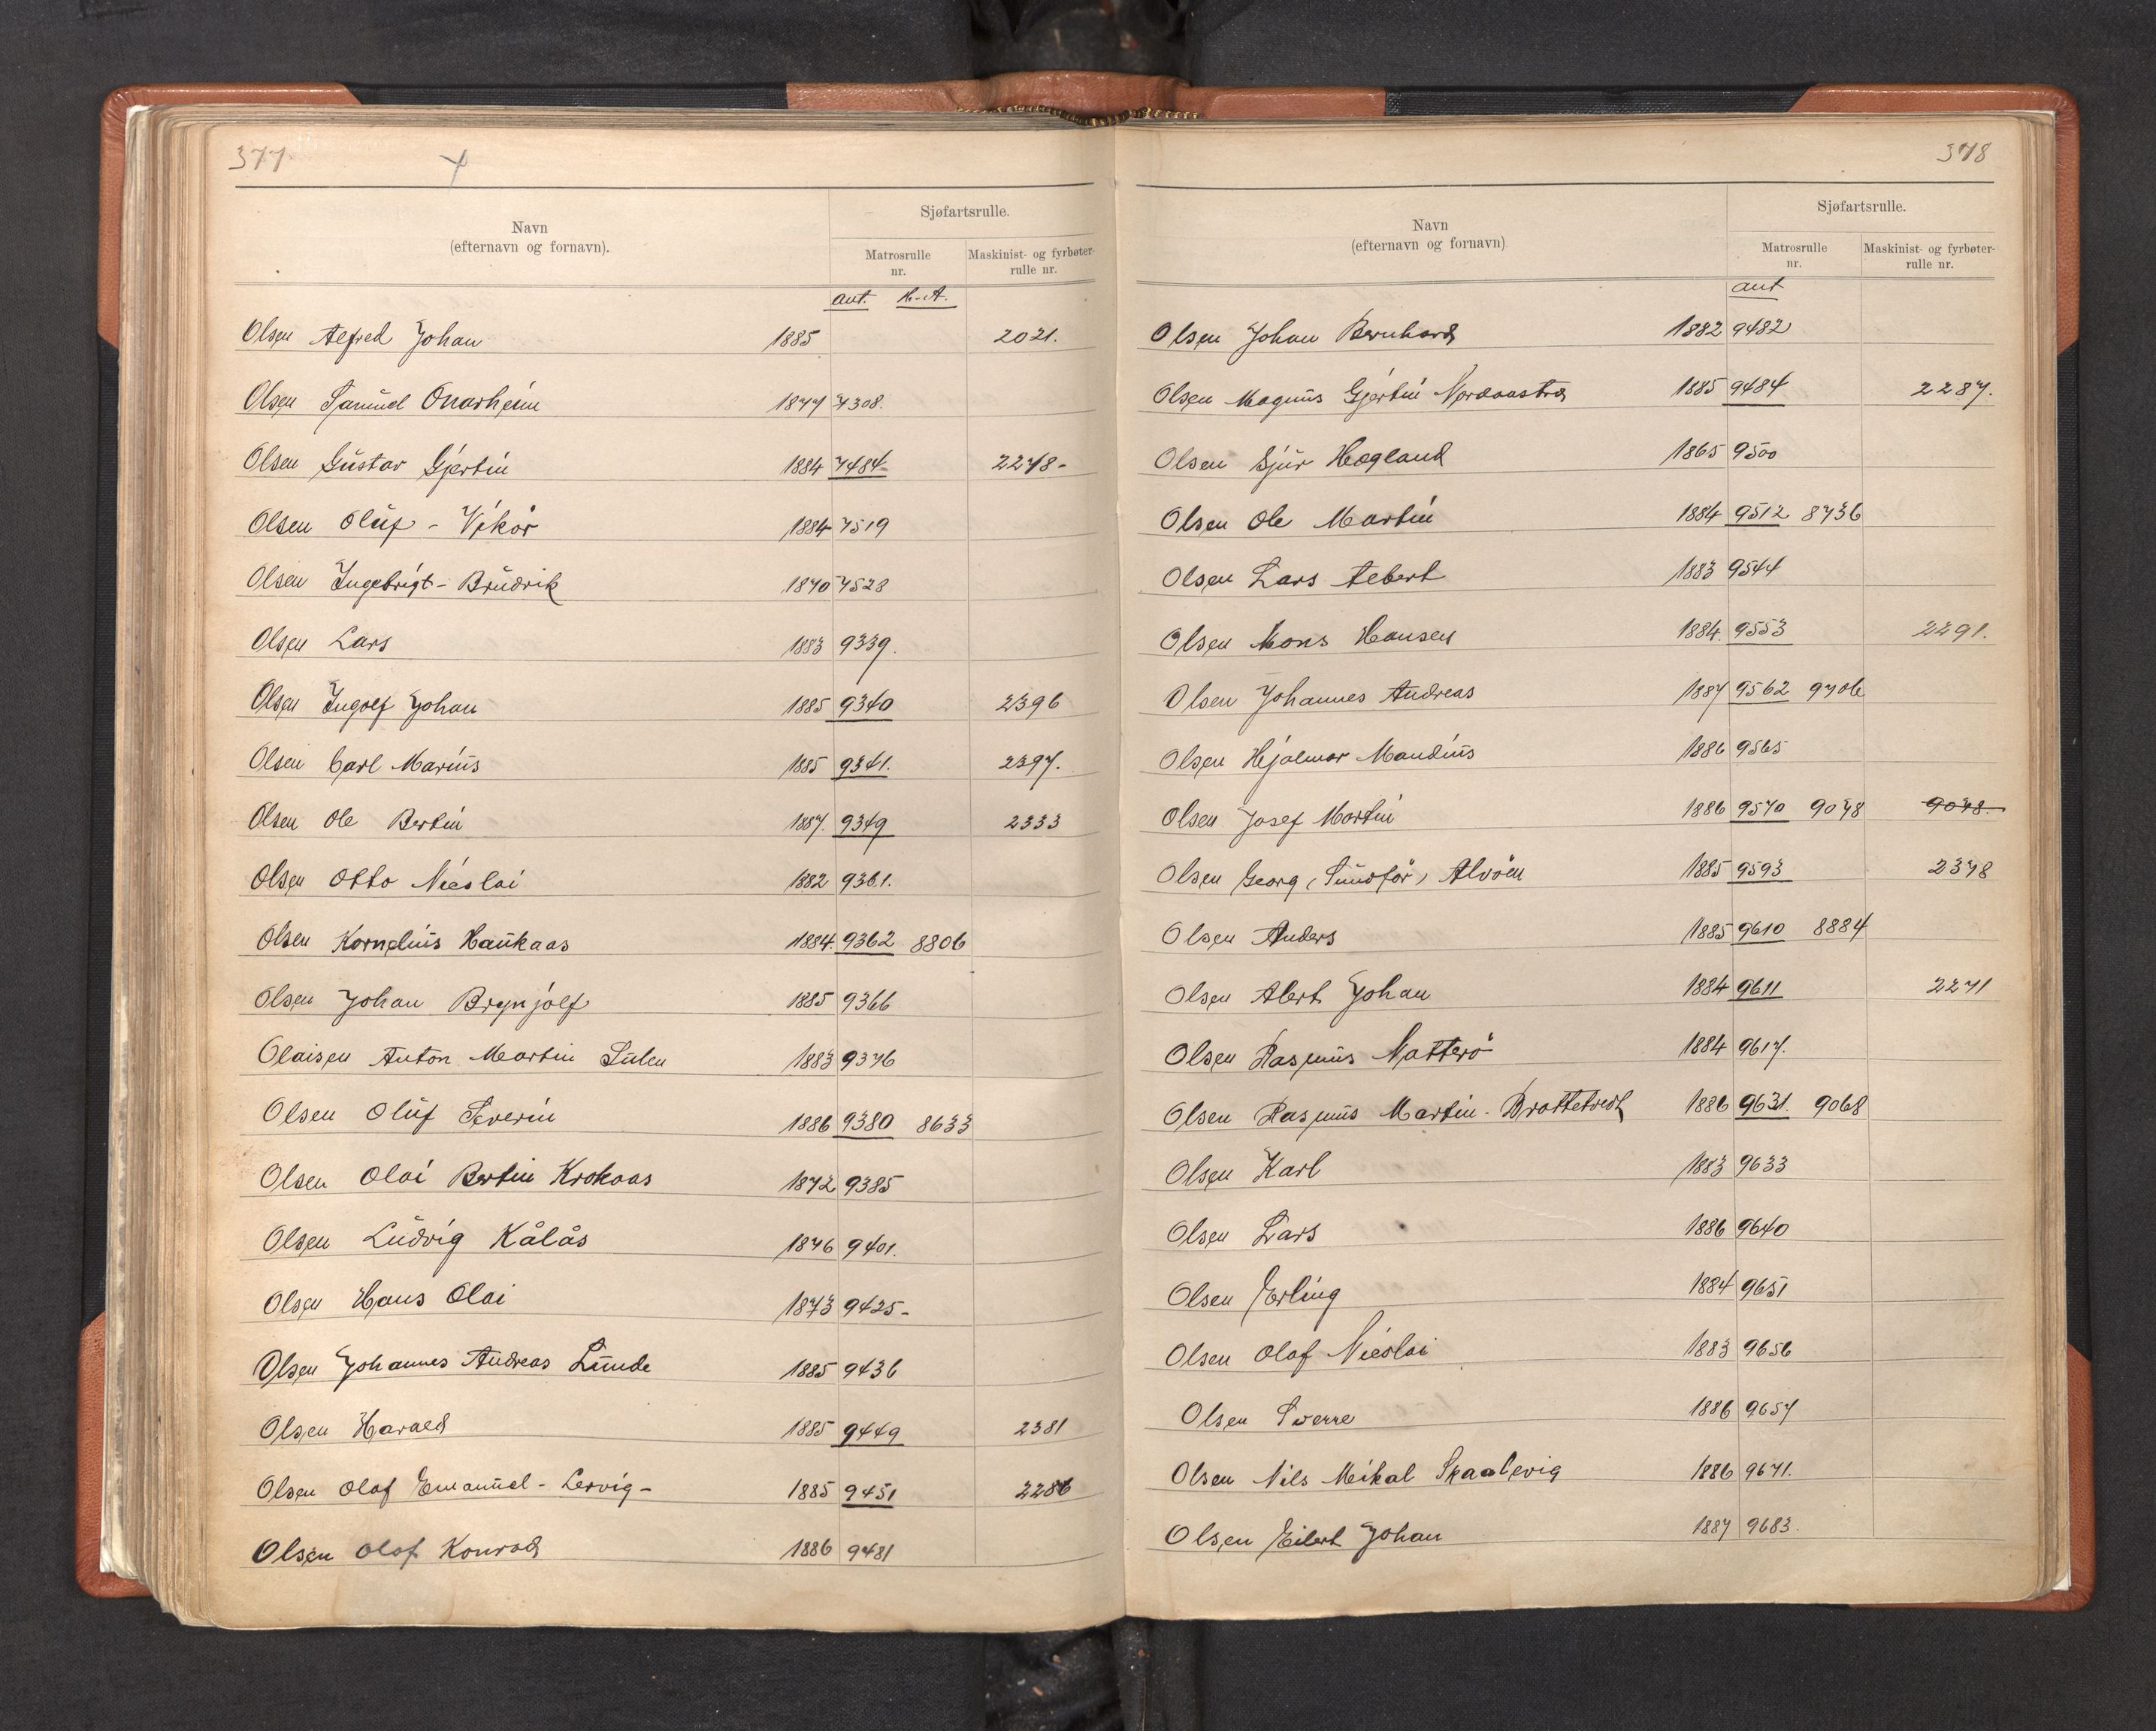 377
Navn
(efternavn og fornavn).
Sjøfartsrulle.
Matrosrulle
nr.
Maskinist- og fyrbøter-
rulle nr.
ant. H.-A.
Olsen Alfred Johan 1885 2021.
Olsen Samuel Onarheim 1877 7308.
Olsen Gustav Gjertin 1884 7484- 2278-
Olsen Oluf - Vikør 1884 7519
Olsen Ingebrigt - Brudvik 1870 7528
Olsen Lars 1883 9339.
Olsen Ingolf Johan 1885 9340 2396
Olsen Carl Marius 1885 9341. 2397.
Olsen Ole Bertin 1887. 9349 2333
Olsen Otto Nicolai 1882 9361.
Olsen Kornelius Haukaas 1884. 9362 8806
Olsen Johan Brynjolf 1885 9366
Olaisen Anton Martin Sulen 1883 9376
Olsen Oluf Severin 1886 9380 8633
Olsen Olai Bertin Krokaas 1872 9385
Olsen Ludvig Kålås 1876 9401.
Olsen Hans Olai 1873 9425-
Olsen Johannes Andreas Lunde 1885 9436
Olsen Harald 1885 9449 2381
Olsen Olaf Emanuel - Lervig - 1885 9451 2286
Olsen Olaf Konrad 1886 9481
378
Navn
(efternavn og fornavn)
Sjøfartsrulle.
Matrosrulle
nr.
Maskinist- og fyrbøter-
rulle nr.
ant
Olsen Johan Bernhard 1882 9482
Olsen Magnus Gjertin Nordaastræ 1885 9484 2287.
Olsen Sjur Hogland 1865 9500
Olsen Ole Martin 1884 9512 8736
Olsen Lars Albert 1883 9544
Olsen Mons Hansen 1884. 9553 2291.
Olsen Johannes Andreas 1887 9562 9706
Olsen Hjalmar Maudius 1886 9565
Olsen Josef Martin 1886 9570 9078 9078.
Olsen Georg (Sundfør) Alvøen 1885 9593 2378
Olsen Anders 1885 9610 8884
Olsen Alert Johan 1884 9611 2271
Olsen Rasmus Natterø 1884 9617.
Olsen Rasmus Martin - Brattetvedt 1886 9631. 9068
Olsen Karl 1883 9633
Olsen Lars 1886 9640
Olsen Erling 1884 9651
Olsen Olaf Nicolai 1883 9656
Olsen Sverre 1886 9657
Olsen Nils Mikal Skaalevig 1886 9671.
Olsen Eilert Johan 1887 9683.